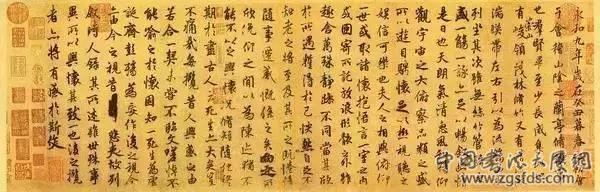 永和九年歲在癸丑暮春之初會
于會稽山陰之蘭亭脩稧事
也群賢畢至少長咸集此地
有崇山峻領茂林脩竹又有清流激
湍暎帶左右引以為流觴曲水
列坐其次雖無絲竹管弦之
盛一觴一詠亦足以暢敘幽情
是日也天朗氣清惠風和暢仰
觀宇宙之大俯察品類之盛
所以遊目騁懷足以極視聽之
娛信可樂也夫人之相與俯仰
一世或取諸懷抱悟言一室之內
或因寄所託放浪形骸之外雖
趣舍萬殊靜躁不同當其欣
於所遇蹔得於己快然自足不
知老之將至及其所之既惓情
隨事遷感慨係之矣向之所
欣俛仰之間以為陳迹猶不
能不以之興懷況脩短隨化終
期於盡古人云死生亦大矣豈
不痛哉每攬昔人興感之由
若合一契未嘗不臨文嗟悼不
能喻之於懷固知一死生為虛
誕齊彭殤為妄作後之視今
亦由今之視昔悲夫故列
敘時人錄其所述雖世殊事
異所以興懷其致一也後之攬
者亦將有感於斯文
中国书法大展网